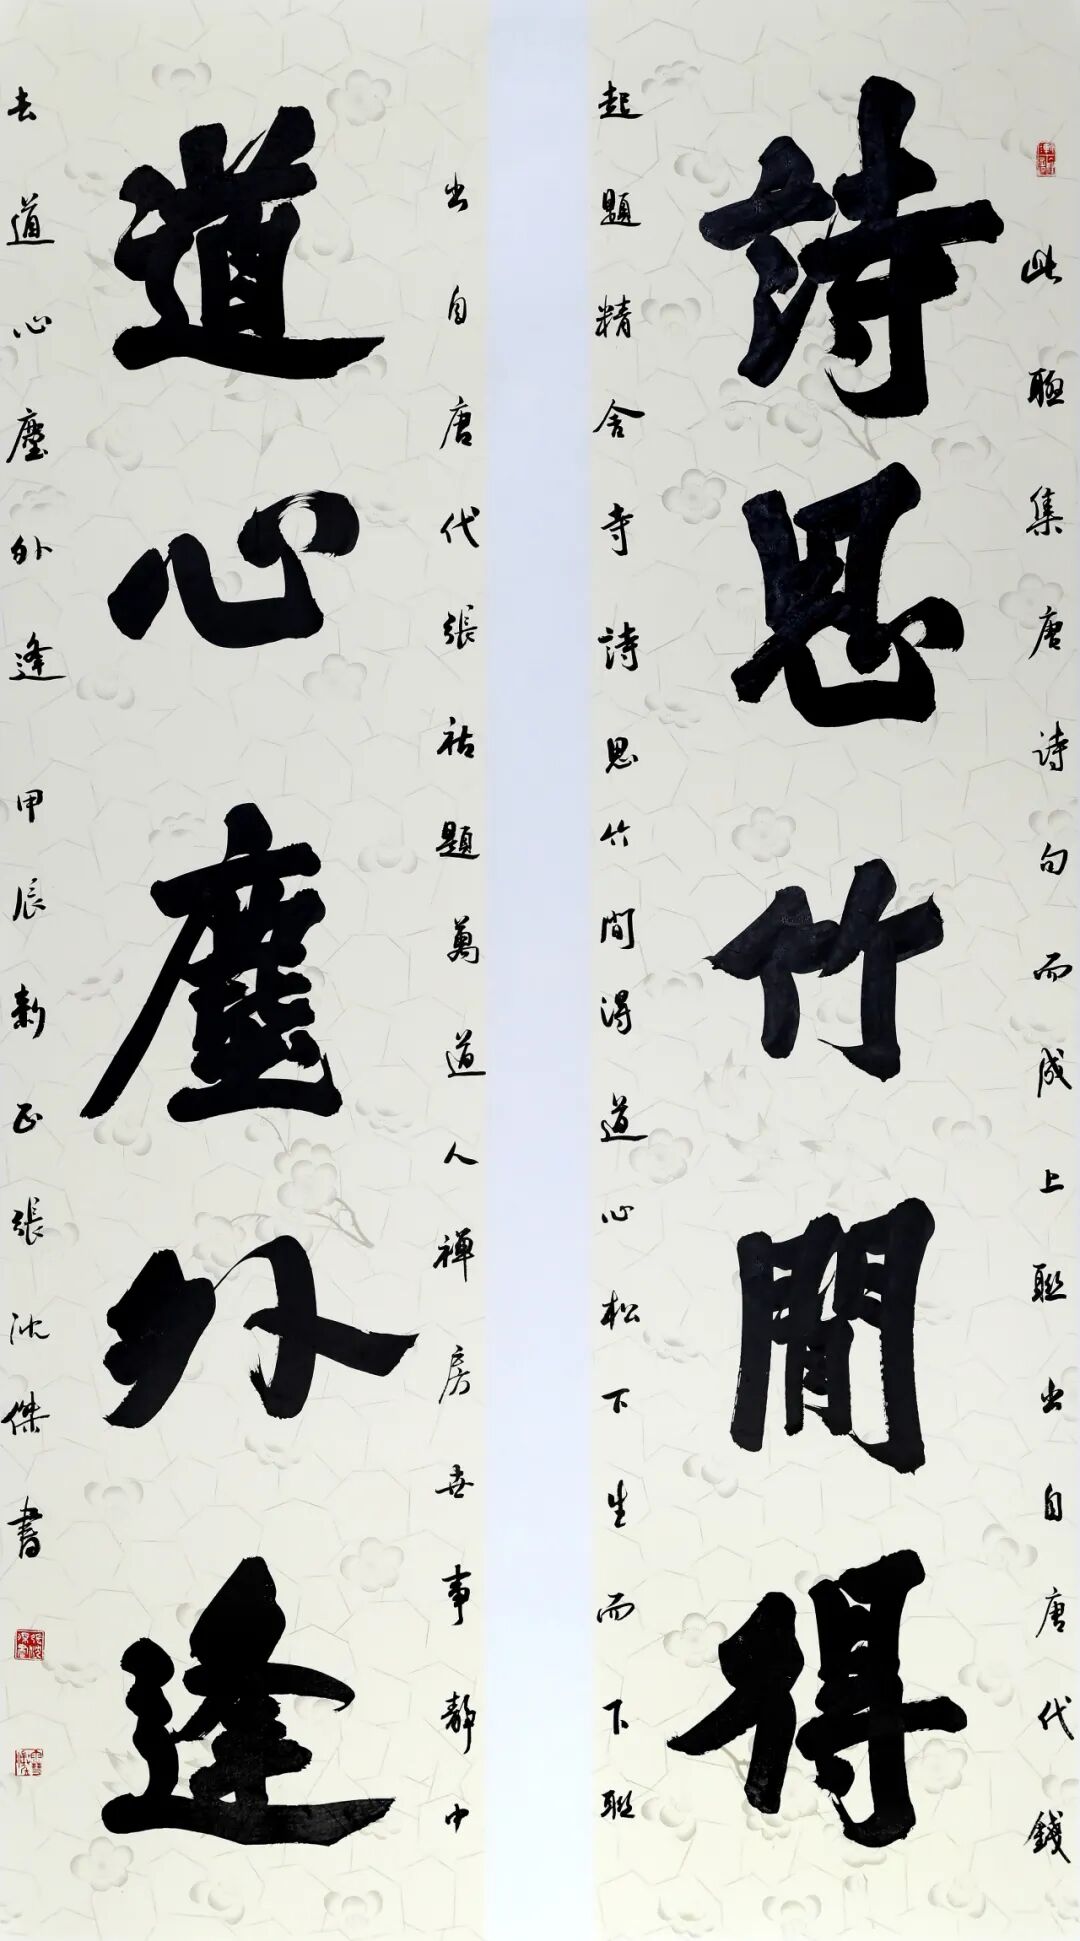 此聯集唐詩句而成上聯出自唐代錢
詩思竹閒得
起題精舍寺詩思竹間得道心松下生而下聯
出自唐代張祜題萬道人禪房世事靜中
道心塵外逢
去道心塵外逢甲辰新正張沈傑書